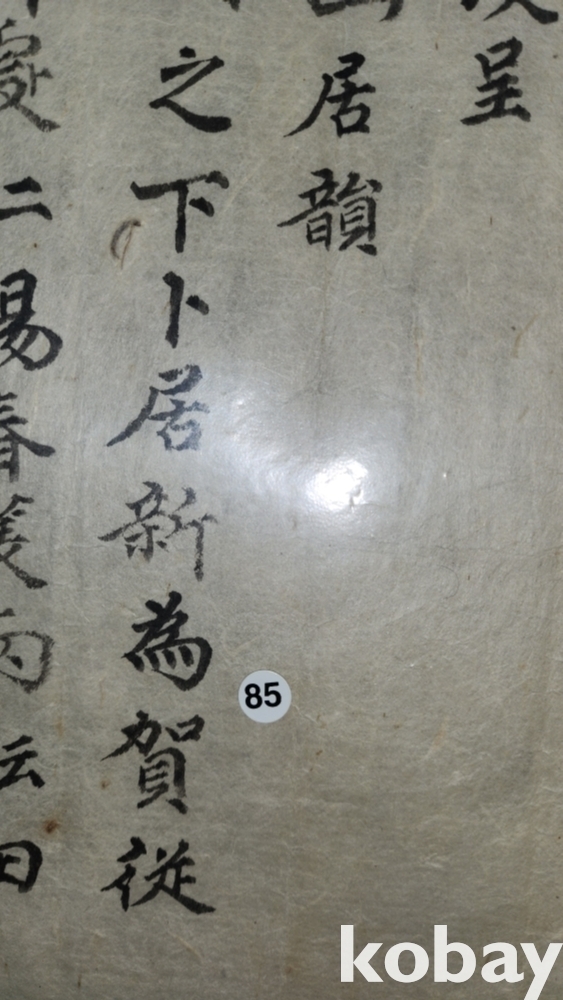 呈
居韻
之下卜居新為賀從
二陽春
85
kobay